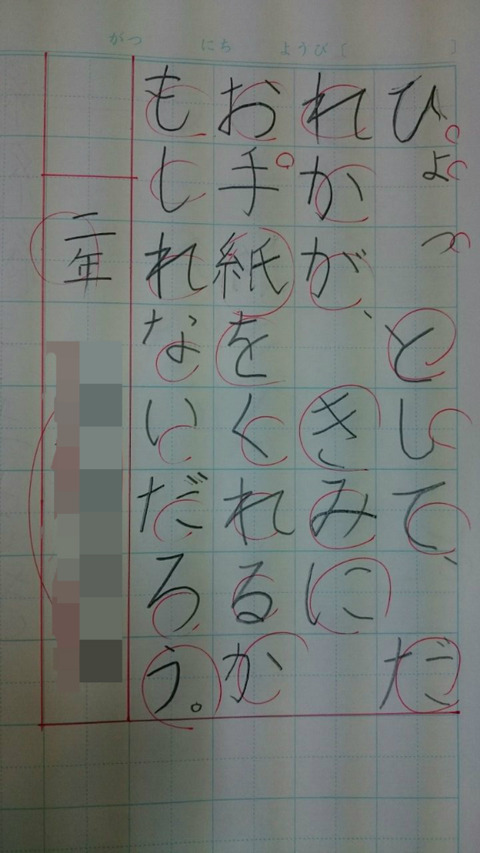 がつ にち ようび〔 〕
ひょっとして、だ
れかが、きみに
お手紙をくれるか
もしれないだろう。
二年